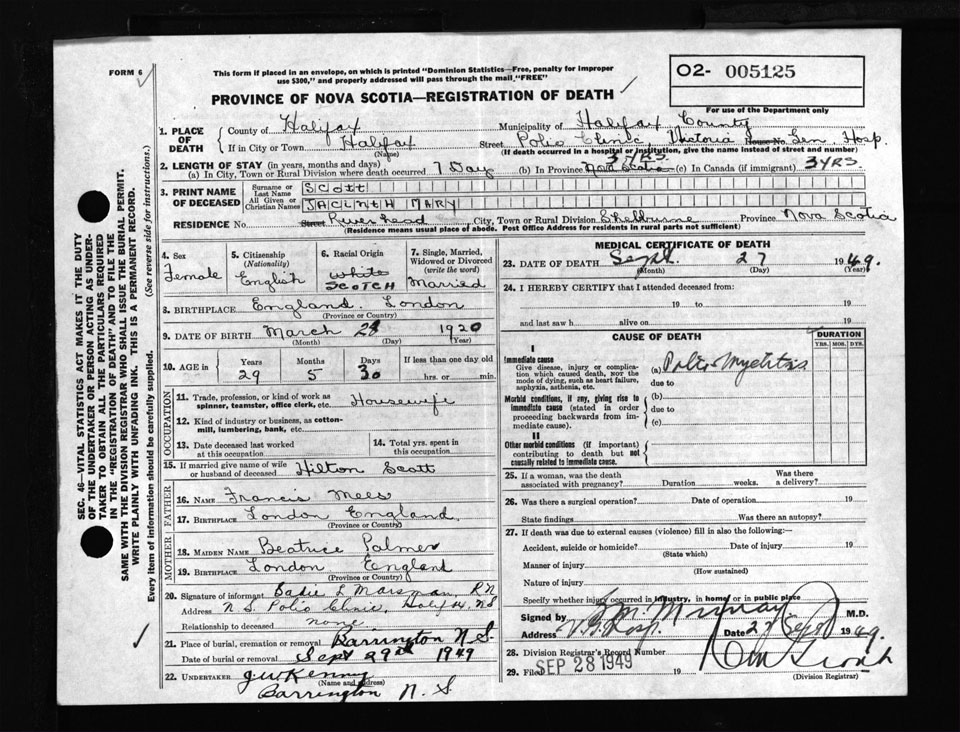 FORM 6
This form if placed in an envelope, on which is printed "Dominion Statistics—Free, penalty for improper
use $300," and properly addressed will pass through the mail "FREE"
O2- 005125
For use of the Department only
PROVINCE OF NOVA SCOTIA—REGISTRATION OF DEATH
SEC. 46—VITAL STATISTICS ACT MAKES IT THE DUTY
OF THE UNDERTAKER OR PERSON ACTING AS UNDER-
TAKER TO OBTAIN ALL THE PARTICULARS REQUIRED
IN THE "REGISTRATION OF DEATH" AND TO FILE THE
SAME WITH THE DIVISION REGISTRAR WHO SHALL ISSUE THE BURIAL PERMIT.
WRITE PLAINLY WITH UNFADING INK. THIS IS A PERMANENT RECORD.
Every item of information should be carefully supplied. (See reverse side for instructions.)
1. PLACE OF DEATH { County of Halifax Municipality of Halifax County
If in City or Town Halifax (Name) Street Polio Clinic, Victoria House No. Gen Hosp.
(If death occurred in a hospital or institution, give the name instead of street and number)
2. LENGTH OF STAY (in years, months and days)
(a) In City, Town or Rural Division where death occurred 1 Day (b) In Province 3 YRS. Nova Scotia (c) In Canada (if immigrant) 3 YRS
3. PRINT NAME OF DECEASED { Surname or Last Name SCOTT
All Given or Christian Names JACINTH MARY
RESIDENCE No. Street River head City, Town or Rural Division Shelburne Province Nova Scotia
(Residence means usual place of abode. Post Office Address for residents in rural parts not sufficient)
4. Sex Female
5. Citizenship (Nationality) English
6. Racial Origin White SCOTCH
7. Single, Married, Widowed or Divorced (write the word) Married
8. BIRTHPLACE England London
(Province or Country)
9. DATE OF BIRTH March 28 1920
(Month) (Day) (Year)
10. AGE in { Years 29 Months 5 Days 30 If less than one day old
hrs. or min.
OCCUPATION
11. Trade, profession, or kind of work as spinner, teamster, office clerk, etc. Housewife
12. Kind of industry or business, as cotton-mill, lumbering, bank, etc.
13. Date deceased last worked at this occupation
14. Total yrs. spent in this occupation
15. If married give name of wife or husband of deceased Hilton Scott
FATHER
16. NAME Francis Mees
17. BIRTHPLACE London England.
(Province or Country)
MOTHER
18. MAIDEN NAME Beatrice Palmer
19. BIRTHPLACE London England
(Province or Country)
20. Signature of informant Sadie L Marsman, RN
Address N.S. Polio Clinic, Halifax. NS
Relationship to deceased none
21. Place of burial, cremation or removal Barrington N.S.
Date of burial or removal Sept 29th 1949
22. UNDERTAKER J.W. Kenny
(Name and address)
Barrington N.S
MEDICAL CERTIFICATE OF DEATH
23. DATE OF DEATH Sept. 27 1949.
(Month) (Day) (Year)
24. I HEREBY CERTIFY that I attended deceased from:
19 to 19
and last saw h alive on 19
CAUSE OF DEATH
DURATION
YRS. MOS. DYS.
I
Immediate cause
Give disease, injury or complication which caused death, NOT the mode of dying, such as heart failure, asphyxia, asthenia, etc.
(a) Polio-Myelitis
due to
Morbid conditions, if any, giving rise to immediate cause (stated in order proceeding backwards from immediate cause).
(b)
due to
(c)
II
Other morbid conditions (if important) contributing to death but not causally related to immediate cause.
25. If a woman, was the death associated with pregnancy? Duration weeks. Was there a delivery?
26. Was there a surgical operation? Date of operation 19
State findings Was there an autopsy?
27. If death was due to external causes (violence) fill in also the following:—
Accident, suicide or homicide? Date of injury 19
(State which)
Manner of injury
(How sustained)
Nature of injury
Specify whether injury occurred in industry, in home, or in public place
Signed by Murray M.D.
Address V.G. Hosp. Date 27 Sept 1949.
28. Division Registrar's Record Number
29. Filed SEP 28 1949 19
(Division Registrar)